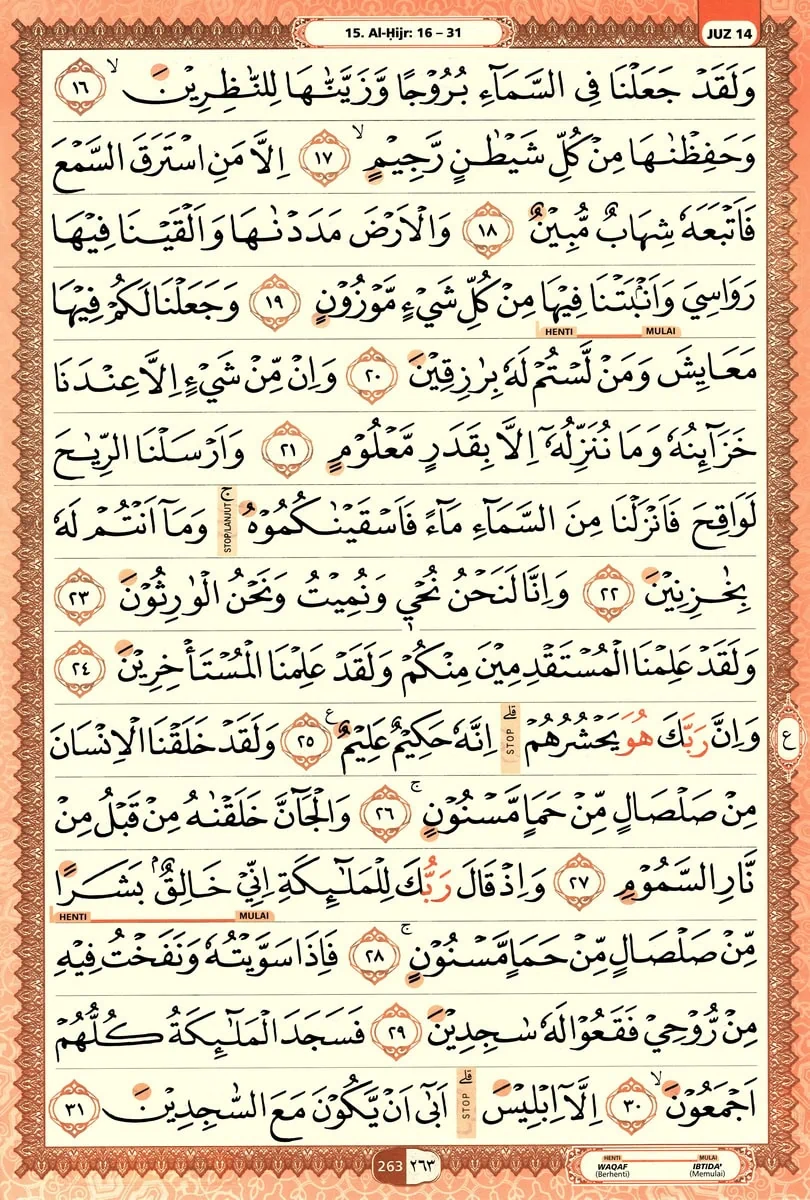 15. Al-Ḥijr: 16 – 31
JUZ 14
وَلَقَدْ جَعَلْنَا فِى السَّمَاۤءِ بُرُوْجًا وَّزَيَّنّٰهَا لِلنّٰظِرِيْنَۙ ١٦
وَحَفِظْنٰهَا مِنْ كُلِّ شَيْطٰنٍ رَّجِيْمٍۙ ١٧ اِلَّا مَنِ اسْتَرَقَ السَّمْعَ
فَاَتْبَعَهٗ شِهَابٌ مُّبِيْنٌ ١٨ وَالْاَرْضَ مَدَدْنٰهَا وَاَلْقَيْنَا فِيْهَا
رَوَاسِيَ وَاَنْۢبَتْنَا فِيْهَا مِنْ كُلِّ شَيْءٍ مَّوْزُوْنٍ ١٩ وَجَعَلْنَا لَكُمْ فِيْهَا
HENTI MULAI
مَعَايِشَ وَمَنْ لَّسْتُمْ لَهٗ بِرٰزِقِيْنَ ٢٠ وَاِنْ مِّنْ شَيْءٍ اِلَّا عِنْدَنَا
خَزَاۤىِٕنُهٗ وَمَا نُنَزِّلُهٗٓ اِلَّا بِقَدَرٍ مَّعْلُوْمٍ ٢١ وَاَرْسَلْنَا الرِّيٰحَ
لَوَاقِحَ فَاَنْزَلْنَا مِنَ السَّمَاۤءِ مَاۤءً فَاَسْقَيْنٰكُمُوْهُۚ STOP/LANJUT وَمَآ اَنْتُمْ لَهٗ
بِخٰزِنِيْنَ ٢٢ وَاِنَّا لَنَحْنُ نُحْيٖ وَنُمِيْتُ وَنَحْنُ الْوٰرِثُوْنَ ٢٣
وَلَقَدْ عَلِمْنَا الْمُسْتَقْدِمِيْنَ مِنْكُمْ وَلَقَدْ عَلِمْنَا الْمُسْتَأْخِرِيْنَ ٢٤
وَاِنَّ رَبَّكَ هُوَ يَحْشُرُهُمْۗ STOP اِنَّهٗ حَكِيْمٌ عَلِيْمٌ ࣖ ٢٥ وَلَقَدْ خَلَقْنَا الْاِنْسَانَ
ع
مِنْ صَلْصَالٍ مِّنْ حَمَاٍ مَّسْنُوْنٍۚ ٢٦ وَالْجَاۤنَّ خَلَقْنٰهُ مِنْ قَبْلُ مِنْ
نَّارِ السَّمُوْمِ ٢٧ وَاِذْ قَالَ رَبُّكَ لِلْمَلٰۤىِٕكَةِ اِنِّيْ خَالِقٌۢ بَشَرًا
HENTI MULAI
مِّنْ صَلْصَالٍ مِّنْ حَمَاٍ مَّسْنُوْنٍۚ ٢٨ فَاِذَا سَوَّيْتُهٗ وَنَفَخْتُ فِيْهِ
مِنْ رُّوْحِيْ فَقَعُوْا لَهٗ سٰجِدِيْنَ ٢٩ فَسَجَدَ الْمَلٰۤىِٕكَةُ كُلُّهُمْ
اَجْمَعُوْنَۙ ٣٠ اِلَّآ اِبْلِيْسَۗ STOP اَبٰىٓ اَنْ يَّكُوْنَ مَعَ السّٰجِدِيْنَ ٣١
263 ٢٦٣
HENTI MULAI
WAQAF IBTIDA'
(Berhenti) (Memulai)